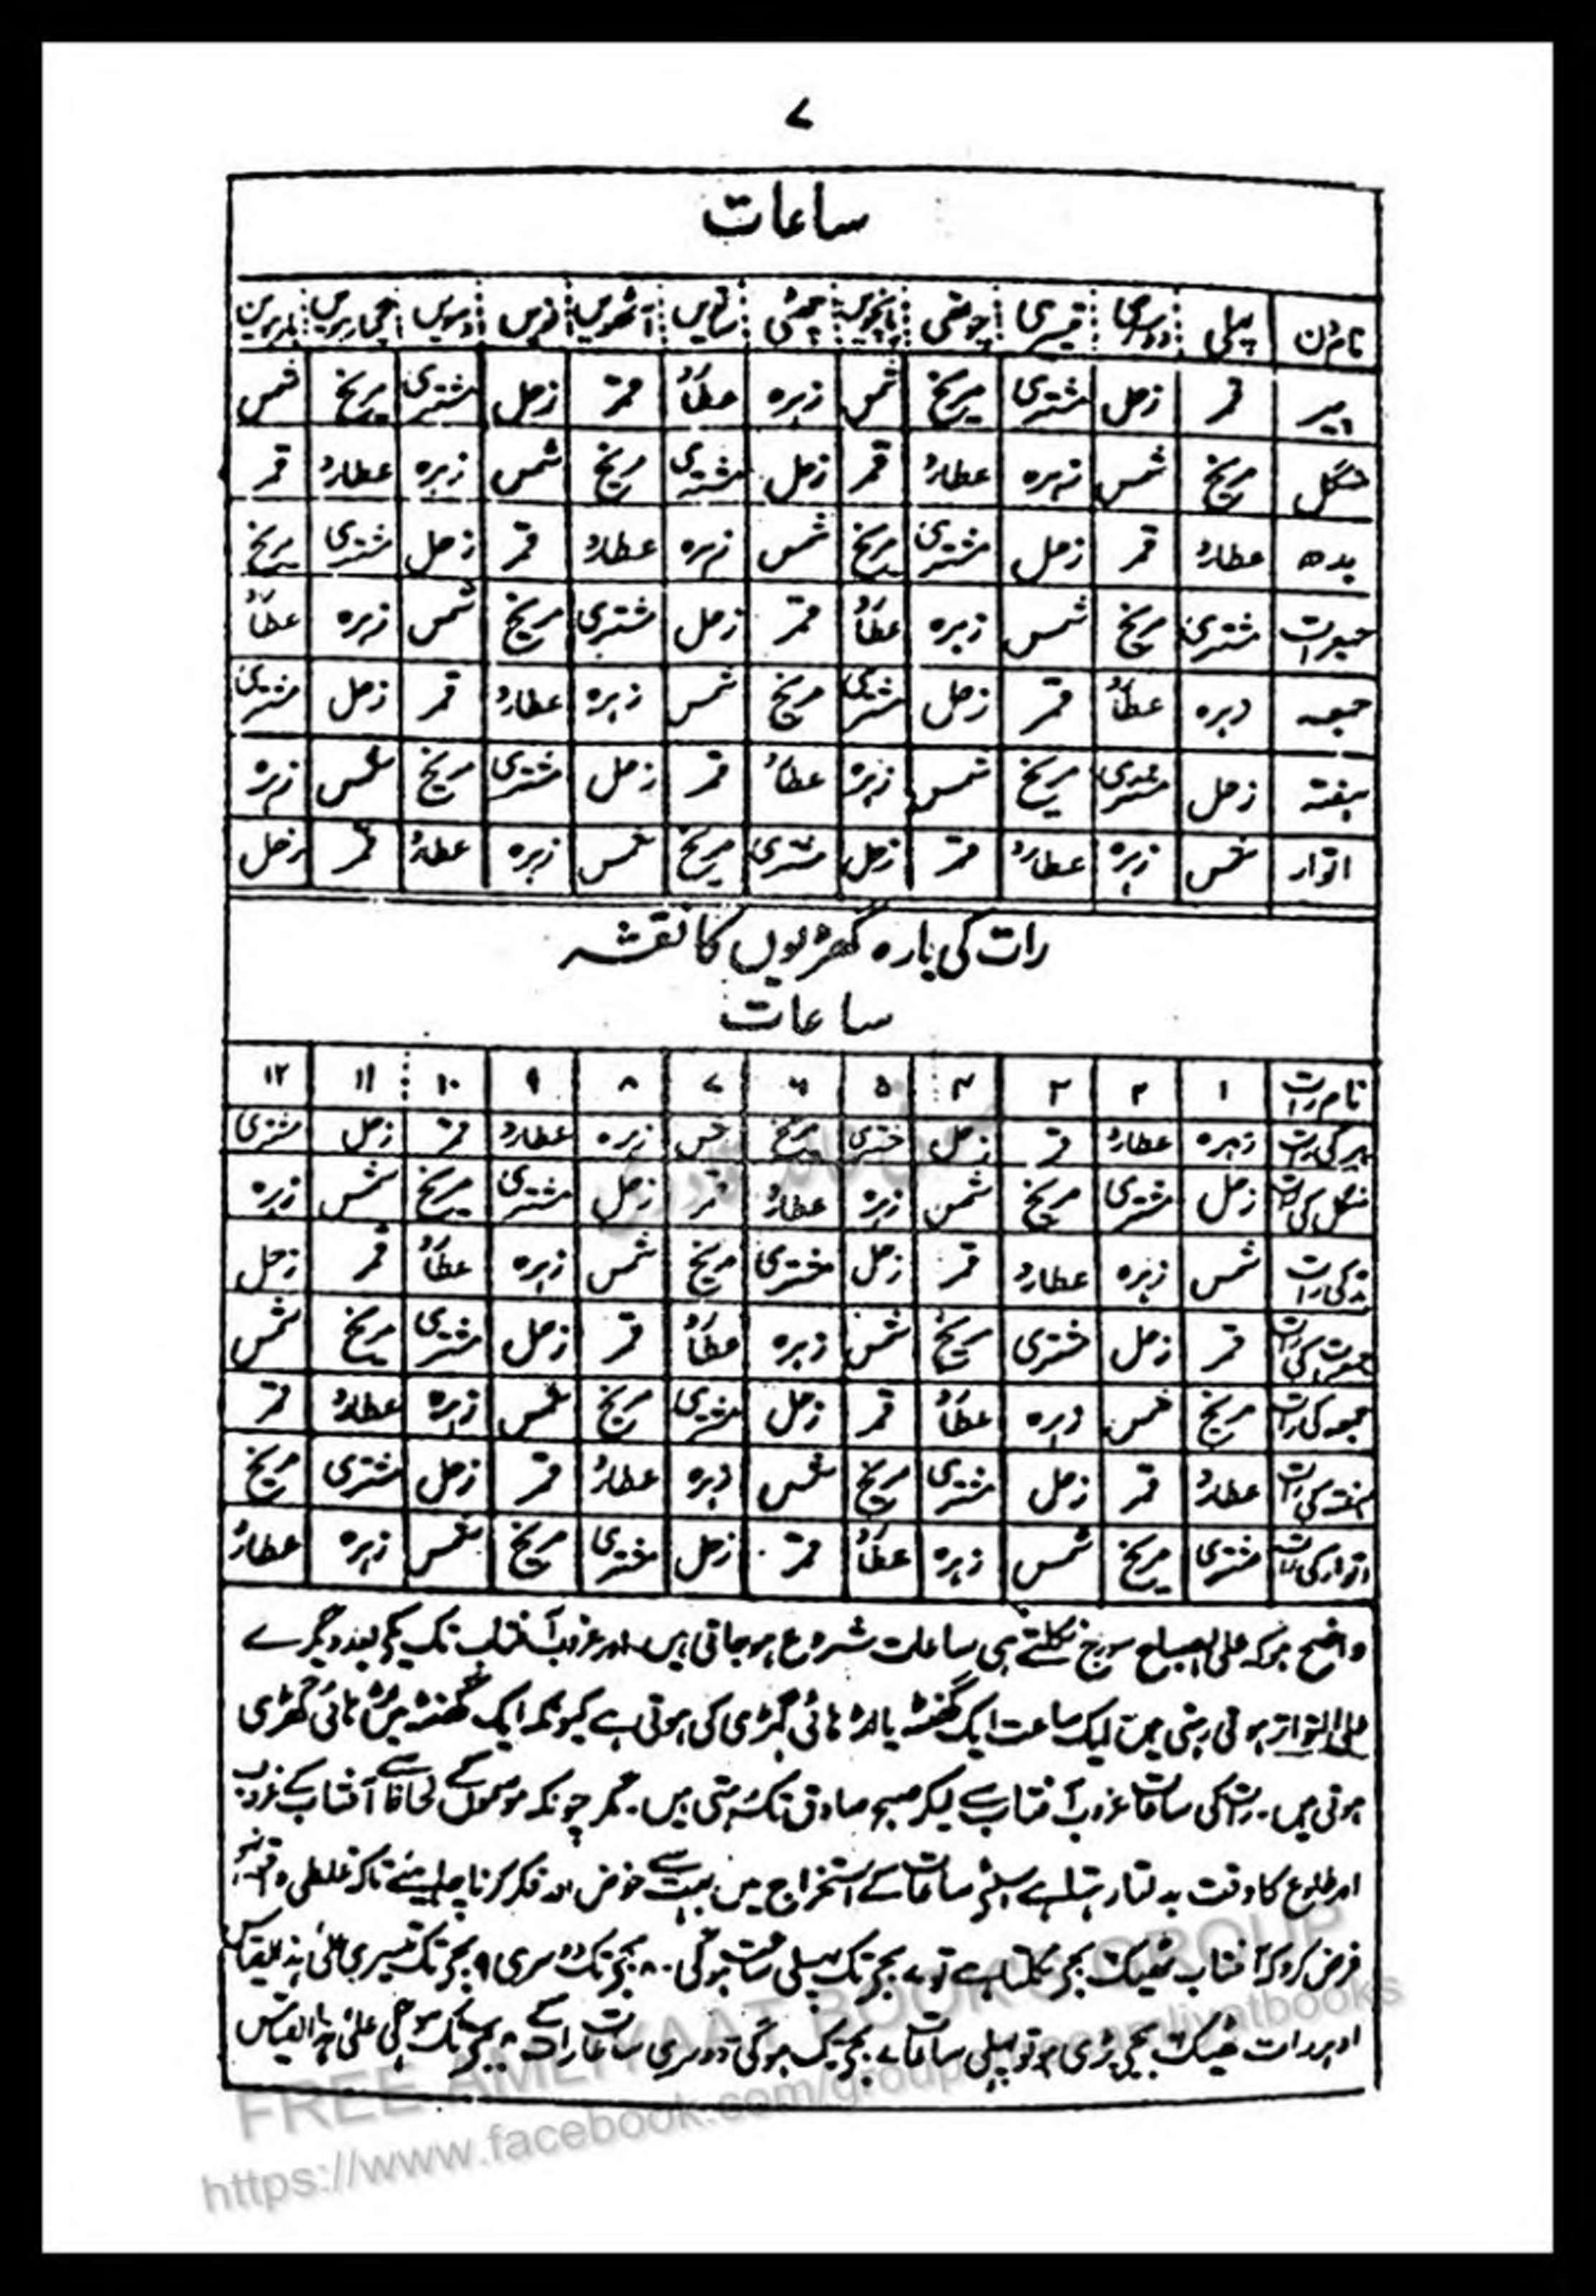 ۷
ساعات
نام دن پہلی دوسری تیسری چوتھی پانچویں چھٹی ساتویں آٹھویں نویں دسویں گیارہویں بارہویں
پیر قمر زحل مشتری مریخ شمس زہرہ عطارد قمر زحل مشتری مریخ شمس
منگل مریخ شمس زہرہ عطارد قمر زحل مشتری مریخ شمس زہرہ عطارد قمر
بدھ عطارد قمر زحل مشتری مریخ شمس زہرہ عطارد قمر زحل مشتری مریخ
جمعرات مشتری مریخ شمس زہرہ عطارد قمر زحل مشتری مریخ شمس زہرہ عطارد
جمعہ زہرہ عطارد قمر زحل مشتری مریخ شمس زہرہ عطارد قمر زحل مشتری
ہفتہ زحل مشتری مریخ شمس زہرہ عطارد قمر زحل مشتری مریخ شمس زہرہ
اتوار شمس زہرہ عطارد قمر زحل مشتری مریخ شمس زہرہ عطارد قمر زحل
رات کی بارہ گھڑیوں کا نقشہ
ساعات
نام رات ۱ ۲ ۳ ۴ ۵ ۶ ۷ ۸ ۹ ۱۰ ۱۱ ۱۲
پیر کی رات زہرہ عطارد قمر زحل مشتری مریخ شمس زہرہ عطارد قمر زحل مشتری
منگل کی رات زحل مشتری مریخ شمس زہرہ عطارد قمر زحل مشتری مریخ شمس زہرہ
بدھ کی رات شمس زہرہ عطارد قمر زحل مشتری مریخ شمس زہرہ عطارد قمر زحل
جمعرات کی رات قمر زحل مشتری مریخ شمس زہرہ عطارد قمر زحل مشتری مریخ شمس
جمعہ کی رات مریخ شمس زہرہ عطارد قمر زحل مشتری مریخ شمس زہرہ عطارد قمر
ہفتہ کی رات عطارد قمر زحل مشتری مریخ شمس زہرہ عطارد قمر زحل مشتری مریخ
اتوار کی رات مشتری مریخ شمس زہرہ عطارد قمر زحل مشتری مریخ شمس زہرہ عطارد
واضح ہو کہ علی الصباح سورج نکلتے ہی ساعات شروع ہو جاتی ہیں اور غروب آفتاب تک یکے بعد دیگرے
علی التواتر ہوتی رہتی ہیں ایک ساعت ایک گھنٹہ یا اڑھائی گھڑی کی ہوتی ہے کیونکہ ایک گھنٹہ میں اڑھائی گھڑی
ہوتی ہیں۔ رات کی ساعات غروب آفتاب سے لیکر صبح صادق تک رہتی ہیں۔ مگر چونکہ موسموں کے لحاظ سے آفتاب کے غروب
اور طلوع کا وقت بدلتا رہتا ہے اسلئے ساعات کے استخراج میں بہت سے خوض اور فکر کرنا چاہیئے تاکہ غلطی واقع نہ ہو
فرض کرو کہ آفتاب ٹھیک بجے نکلتا ہے تو ۷ بجے تک پہلی ساعت ہو گی۔ ۸ بجے تک دوسری ۹ بجے تک تیسری علیٰ ہذالقیاس
اور رات ٹھیک بجے پڑی ہو تو پہلی ساعت ۷ بجے تک ہو گی دوسری ساعت رات کے ۸ بجے تک ہو گی علیٰ ہذالقیاس
FREE AMLIYAAT BOOKS GROUP